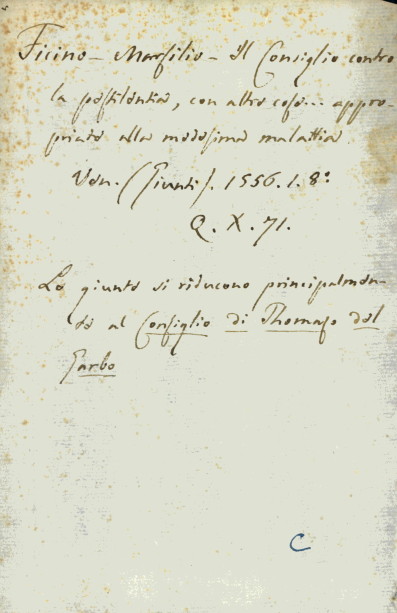 Ficino - Marsilio - Il Consiglio contro
la pestilentia, con altre cose... appro-
priate alla medesima malattia.
Ven. (Giunti). 1556. 1. 8º
Q. X. 71.
Le giunte si riducono principalmen-
te al Consiglio di Thomaso del
Garbo
C